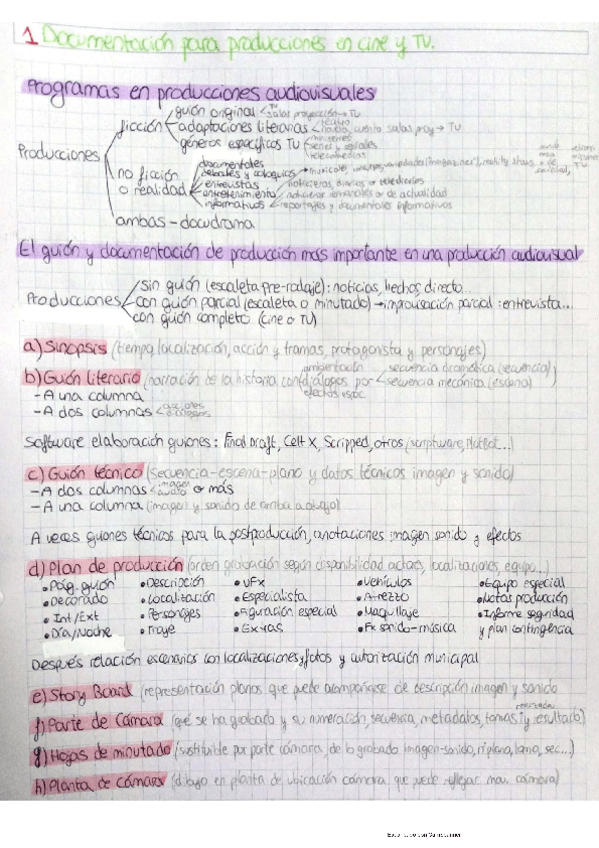 1 Documentación para producciones en cine y TV.
Programas en producciones audiovisuales
Producciones
ficción
guión original
TV
salas proyección → TV
adaptaciones literarias
teatro
novela, cuento salas proy → TV
géneros específicos TV
miniseries
series y seriales
telecomedias
no ficción
o realidad
documentales
debates y coloquios
entrevistas
entretenimiento
informativos
→ musicales, concursos, variedades (magazines), reality shows
noticieros, diarios o telediarios
noticieros semanales o de actualidad
reportajes y documentales informativos
ambas - docudrama
El guión y documentación de producción más importante en una producción audiovisual
Producciones
sin guión (escaleta pre-rodaje): noticias, hechos, directo...
con guión parcial (escaleta o minutado) → improvisación parcial: entrevista...
con guión completo (cine o TV)
a) Sinopsis (tiempo, localización, acción y tramas, protagonista y personajes)
b) Guión literario (narración de la historia con diálogos por
ambientación
efectos espec
secuencia dramática (secuencia)
secuencia mecánica (escena)
- A una columna
- A dos columnas
acciones
diálogos
Software elaboración guiones: Final Draft, Celt X, Scripped, otros (scriptware, PlotBot...)
c) Guión técnico (secuencia-escena-plano y datos técnicos imagen y sonido)
- A dos columnas
imagen
audio
o más
- A una columna (imagen y sonido de arriba a abajo)
A veces guiones técnicos para la postproducción, anotaciones imagen sonido y efectos
d) Plan de producción (orden grabación según disponibilidad actores, localizaciones, equipo...)
• Pág. guión • Descripción • VFx • Vehículos • Equipo especial
• Decorado • Localización • Especialista • Atrezzo • Notas producción
• Int/Ext • Personajes • Figuración especial • Maquillaje • Informe seguridad
• Día/Noche • Traje • Extras • Fx sonido-música y plan contingencia
Después relación escenarios con localizaciones, fotos y autorización municipal
e) Story Board (representación planos que puede acompañarse de descripción imagen y sonido
f) Parte de Cámara (qué se ha grabado y su numeración, secuencia, metadatos, tomas y resultado)
g) Hojas de minutado (sustituible por parte cámara, de lo grabado imagen-sonido, nº plano, toma, sec...)
h) Planta de cámara (dibujo en planta de ubicación cámara que puede reflejar mov. cámara)